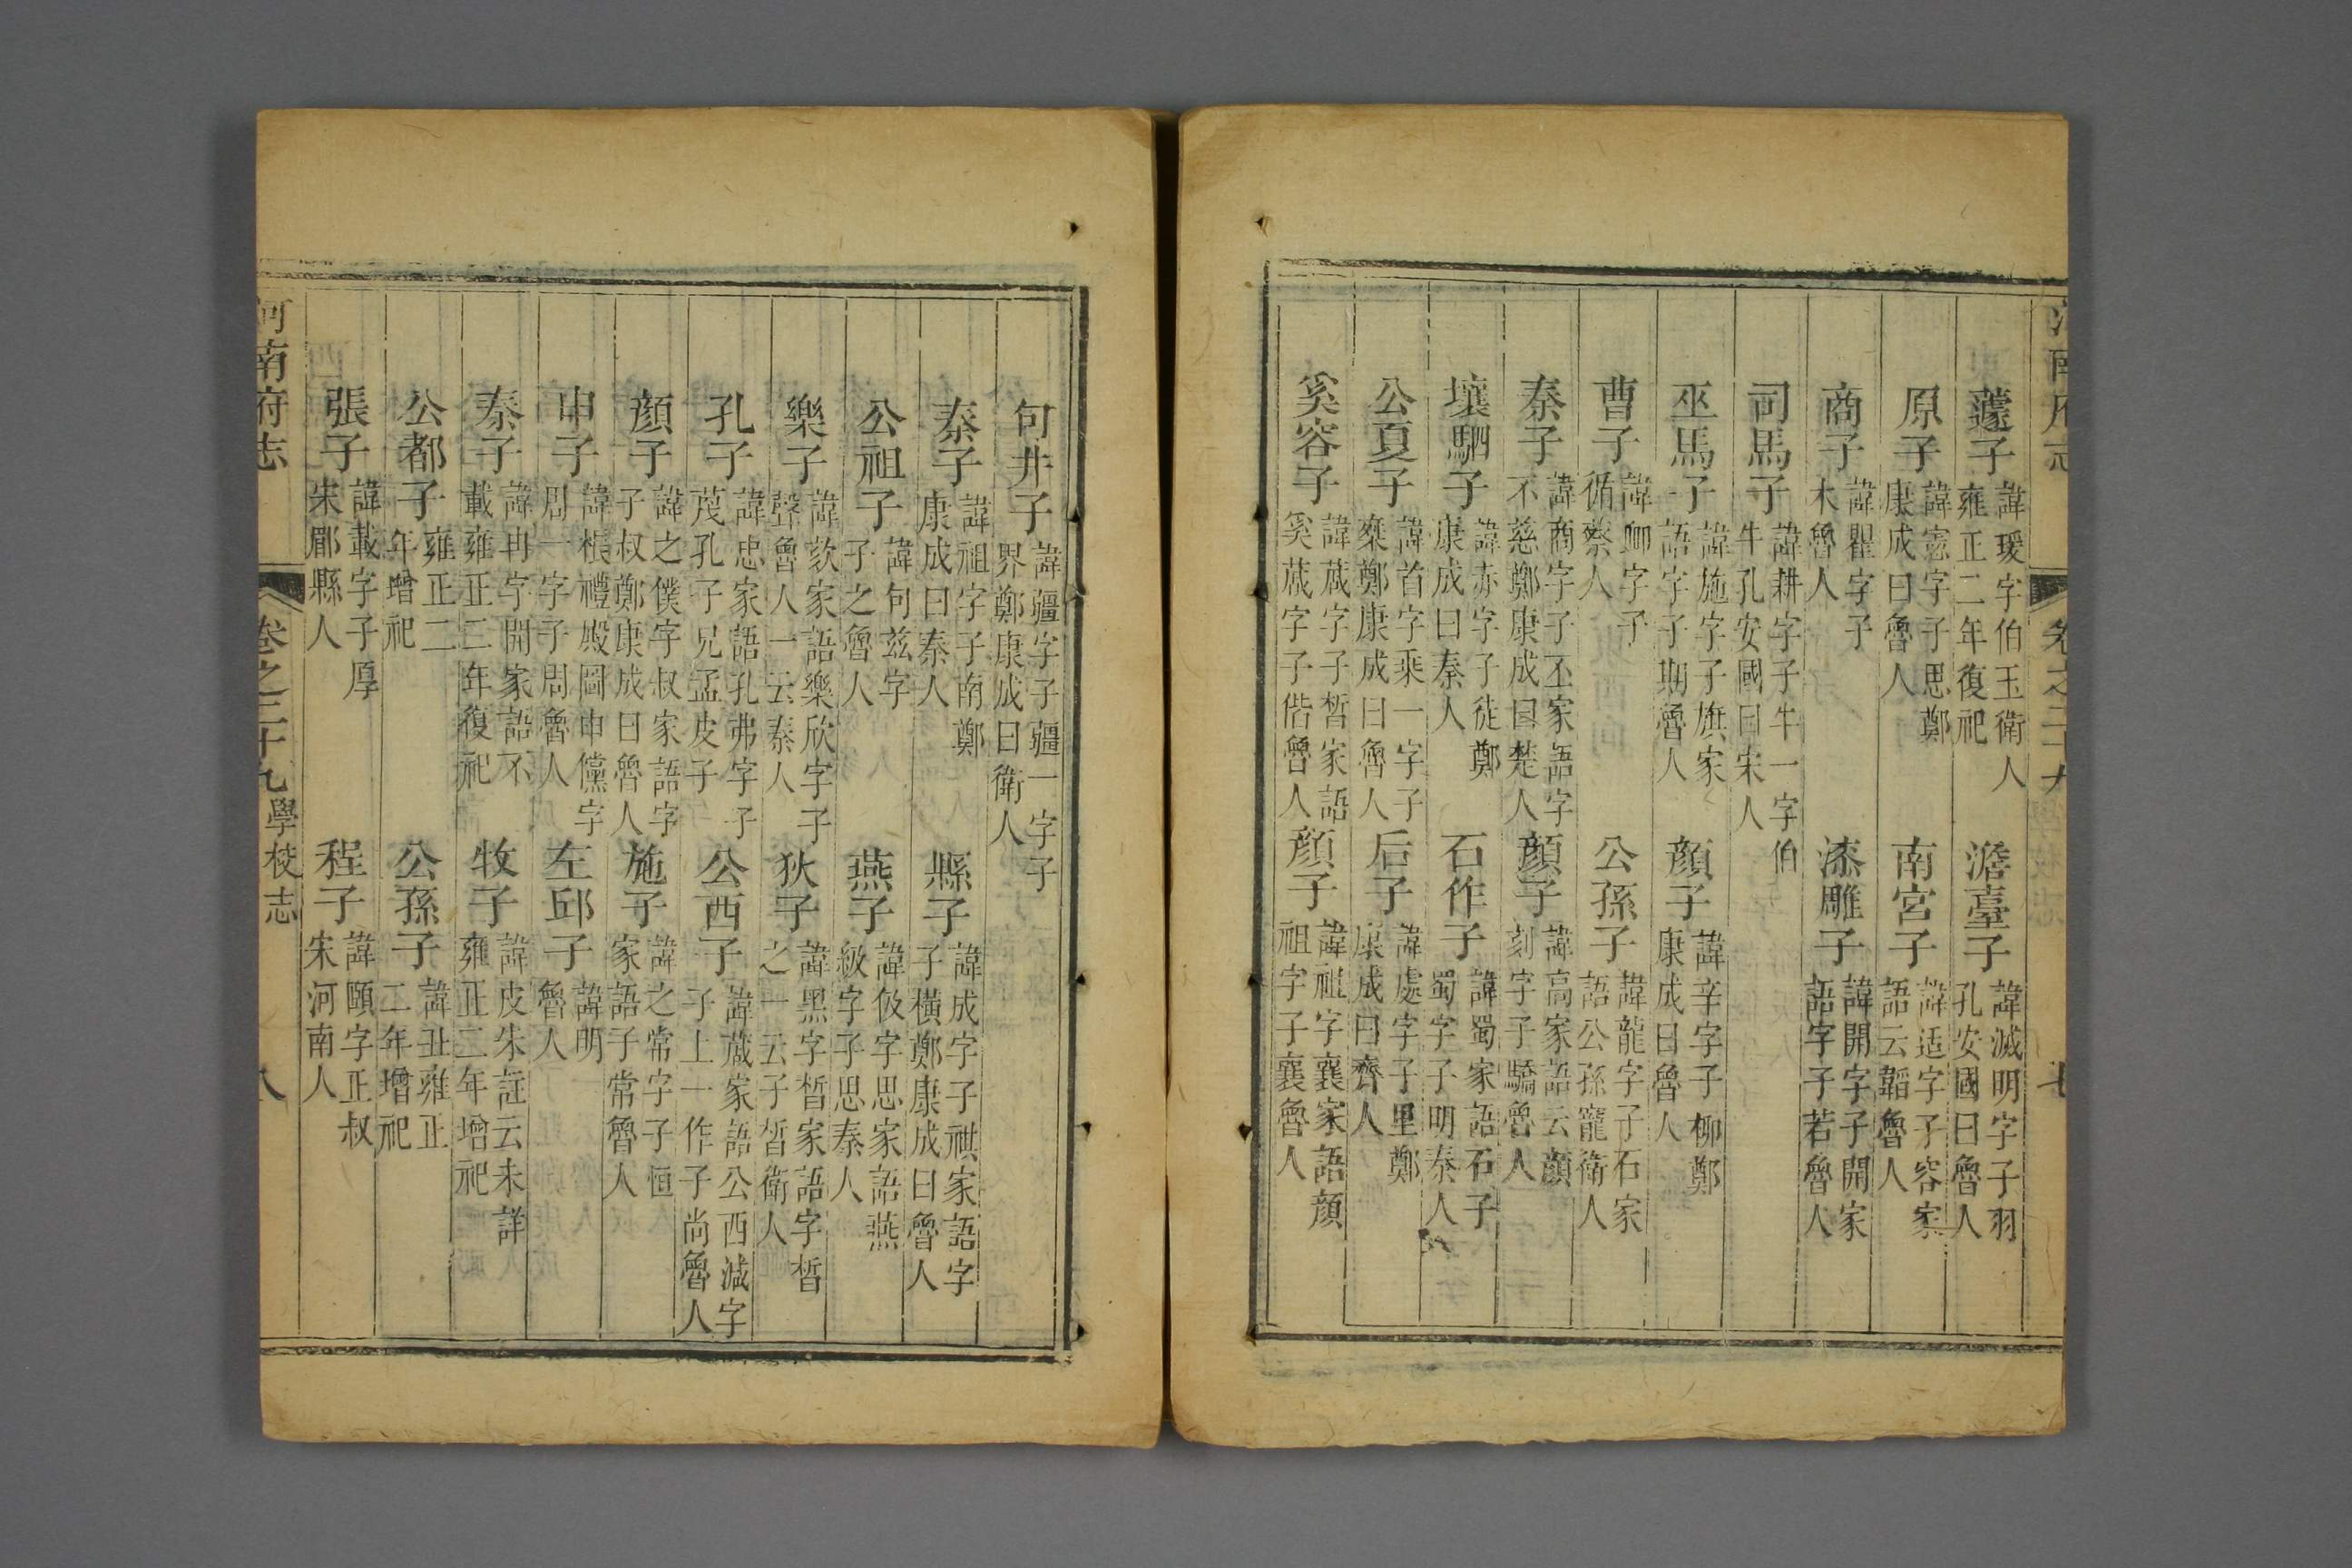 河南府志 卷之二十九 七
蘧子 諱瑗字伯玉衛人雍正二年復祀 澹臺子 諱滅明字子羽孔安國曰魯人
原子 諱憲字子思鄭康成曰魯人 南宮子 諱适字子容家語云韜魯人
商子 諱瞿字子木魯人 漆雕子 諱開字子開家語字子若魯人
司馬子 諱耕字子牛一字伯牛孔安國曰宋人
巫馬子 諱施字子旗家語字子期魯人 顏子 諱辛字子柳鄭康成曰魯人
曹子 諱卹字子循蔡人 公孫子 諱龍字子石家語公孫寵衛人
秦子 諱商字子丕家語字不慈鄭康成曰楚人 顏子 諱高家語云顏刻字子驕魯人
壤駟子 諱赤字子徒鄭康成曰秦人 石作子 諱蜀家語石子蜀字子明秦人
公夏子 諱首字乘一字子乘鄭康成曰魯人 后子 諱處字子里鄭康成曰齊人
奚容子 諱蒧字子皙家語奚蒧字子偕魯人 顏子 諱祖字襄家語顏祖字子襄魯人
句井子 諱疆字子疆一字子界鄭康成曰衛人
秦子 諱祖字子南鄭康成曰秦人 縣子 諱成字子祺家語字子橫鄭康成曰魯人
公祖子 諱句兹字子之魯人 燕子 諱伋字思家語燕級字子思秦人
樂子 諱欬家語樂欣字子聲魯人一云秦人 狄子 諱黑字皙家語字皙之一云子皙衛人
孔子 諱忠家語孔弗字子蔑孔子兄孟皮子 公西子 諱蒧家語公西減字子上一作子尚魯人
顏子 諱之僕字叔家語字子叔鄭康成曰魯人 施子 諱之常字子恒家語子常魯人
申子 諱棖禮殿圖申儻字周一字子周魯人 左邱子 諱明魯人
秦子 諱冉字開家語不載雍正二年復祀 牧子 諱皮朱註云未詳雍正二年增祀
公都子 雍正二年增祀 公孫子 諱丑雍正二年增祀
張子 諱載字子厚宋郿縣人 程子 諱頤字正叔宋河南人
河南府志 卷之二十九 學校志 八